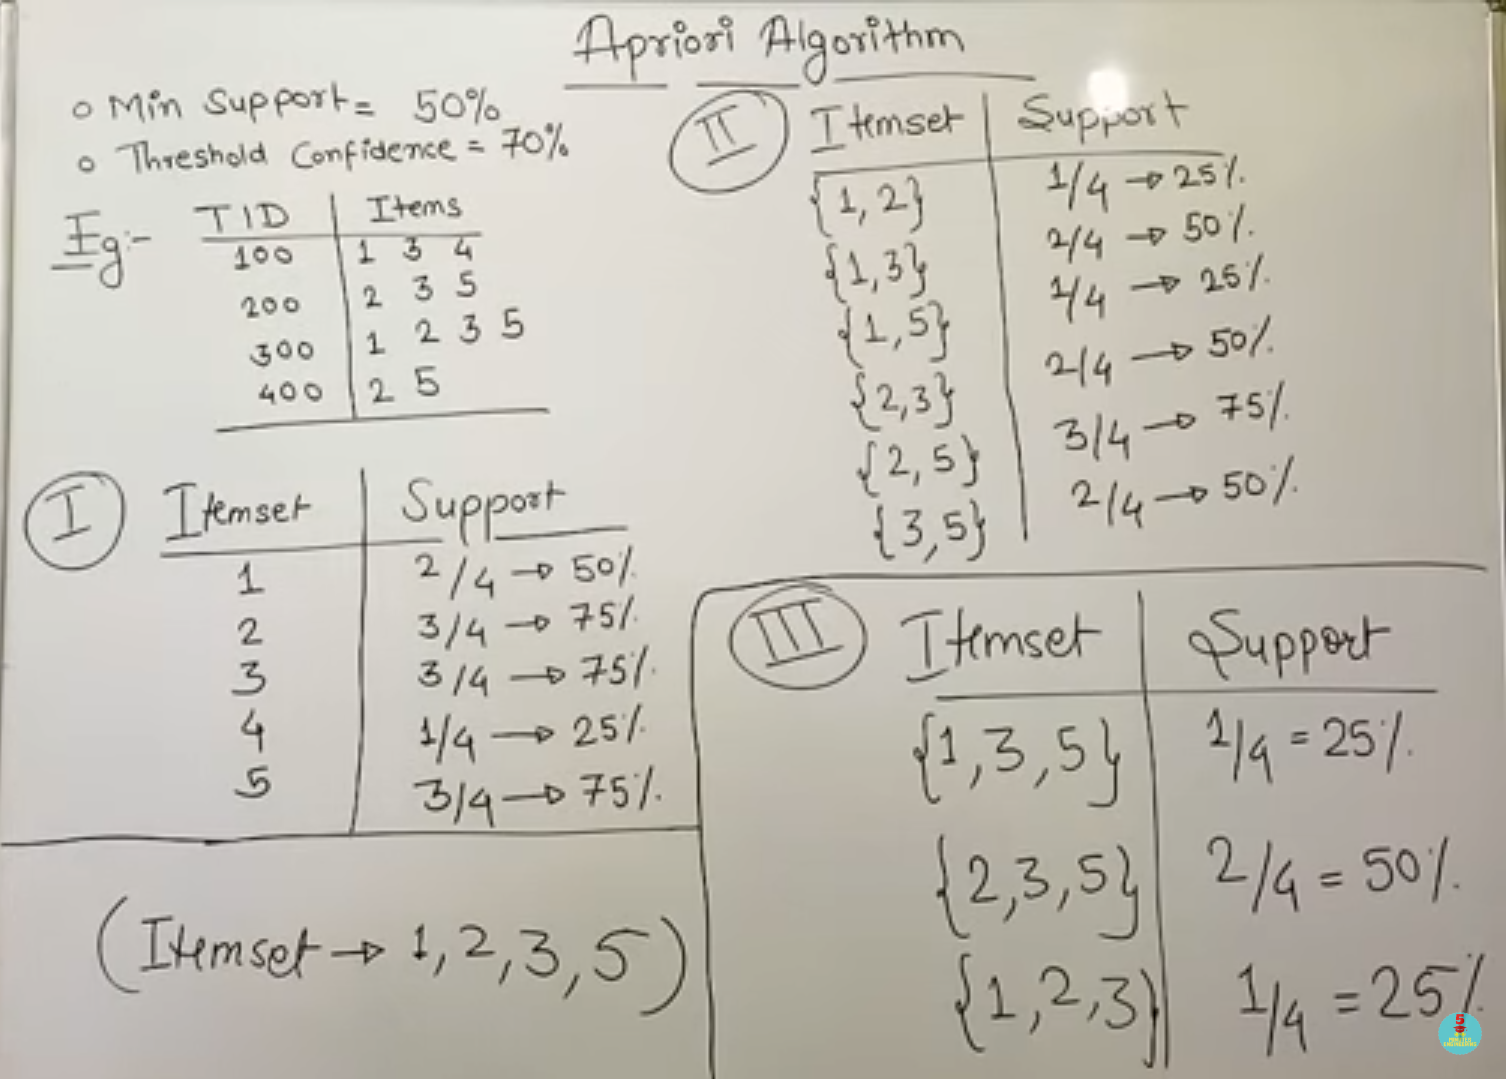 Apriori Algorithm
○ Min Support = 50%
○ Threshold Confidence = 70%
Eg:-
TID | Items
100 | 1 3 4
200 | 2 3 5
300 | 1 2 3 5
400 | 2 5
I
Itemset | Support
1 | 2/4 → 50%
2 | 3/4 → 75%
3 | 3/4 → 75%
4 | 1/4 → 25%
5 | 3/4 → 75%
(Itemset → 1, 2, 3, 5)
II
Itemset | Support
{1, 2} | 1/4 → 25%
{1, 3} | 2/4 → 50%
{1, 5} | 1/4 → 25%
{2, 3} | 2/4 → 50%
{2, 5} | 3/4 → 75%
{3, 5} | 2/4 → 50%
III
Itemset | Support
{1, 3, 5} | 1/4 = 25%
{2, 3, 5} | 2/4 = 50%
{1, 2, 3} | 1/4 = 25%
5